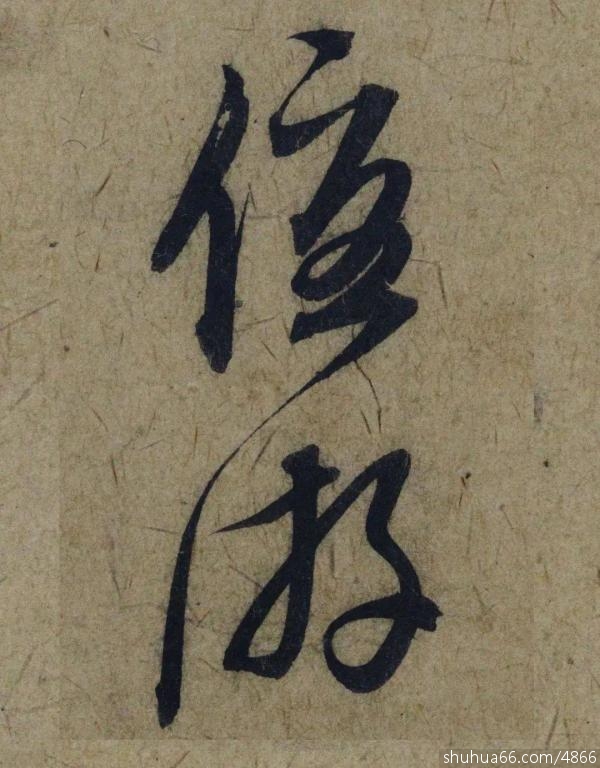 優游
shuhua66.com/4866